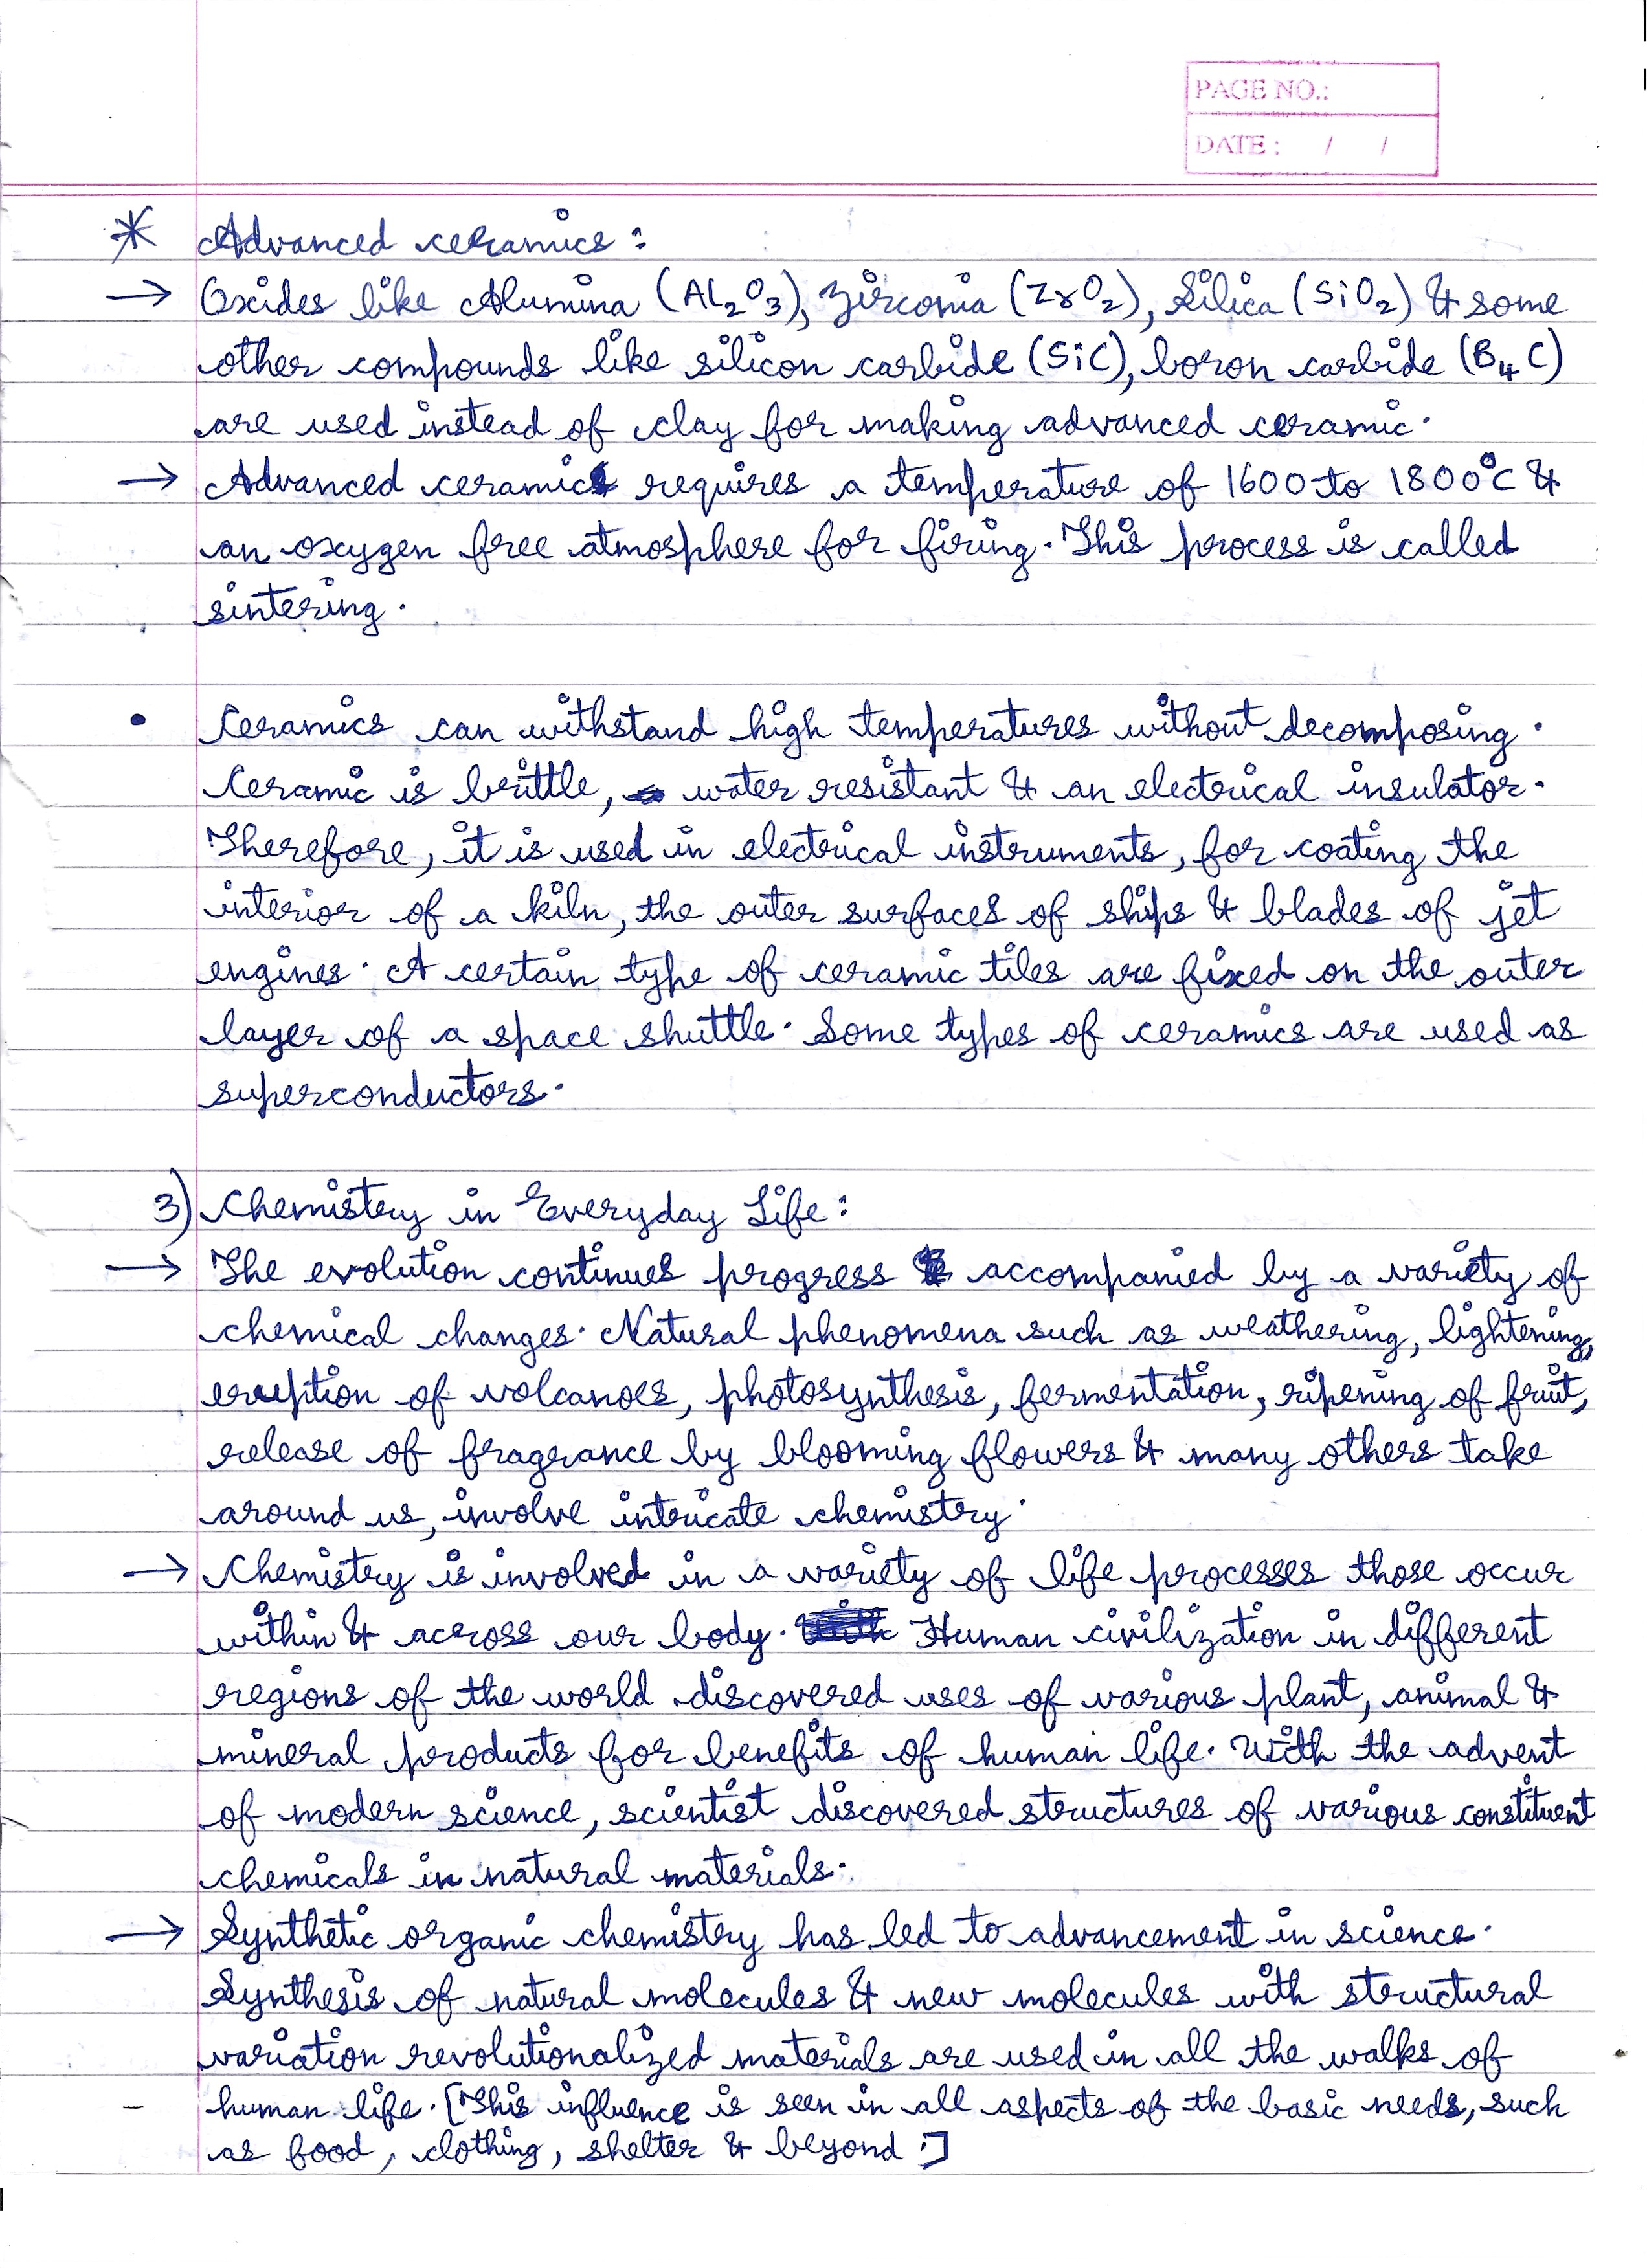 PAGE NO.:
DATE : / /
* Advanced ceramics :
→ Oxides like Alumina (Al₂O₃), Zirconia (ZrO₂), Silica (SiO₂) & some
other compounds like silicon carbide (SiC), boron carbide (B₄C)
are used instead of clay for making advanced ceramic.
→ Advanced ceramics requires a temperature of 1600 to 1800°C &
an oxygen free atmosphere for firing. This process is called
sintering.
• Ceramics can withstand high temperatures without decomposing.
Ceramic is brittle, water resistant & an electrical insulator.
Therefore, it is used in electrical instruments, for coating the
interior of a kiln, the outer surfaces of ships & blades of jet
engines. A certain type of ceramic tiles are fixed on the outer
layer of a space shuttle. Some types of ceramics are used as
superconductors.
3) Chemistry in Everyday Life :
→ The evolution continues progress accompanied by a variety of
chemical changes. Natural phenomena such as weathering, lightening,
eruption of volcanoes, photosynthesis, fermentation, ripening of fruit,
release of fragrance by blooming flowers & many others take
around us, involve intricate chemistry.
→ Chemistry is involved in a variety of life processes those occur
within & across our body. Human civilization in different
regions of the world discovered uses of various plant, animal &
mineral products for benefits of human life. With the advent
of modern science, scientist discovered structures of various constituent
chemicals in natural materials.
→ Synthetic organic chemistry has led to advancement in science.
Synthesis of natural molecules & new molecules with structural
variation revolutionalized materials are used in all the walks of
human life. [This influence is seen in all aspects of the basic needs, such
as food, clothing, shelter & beyond.]